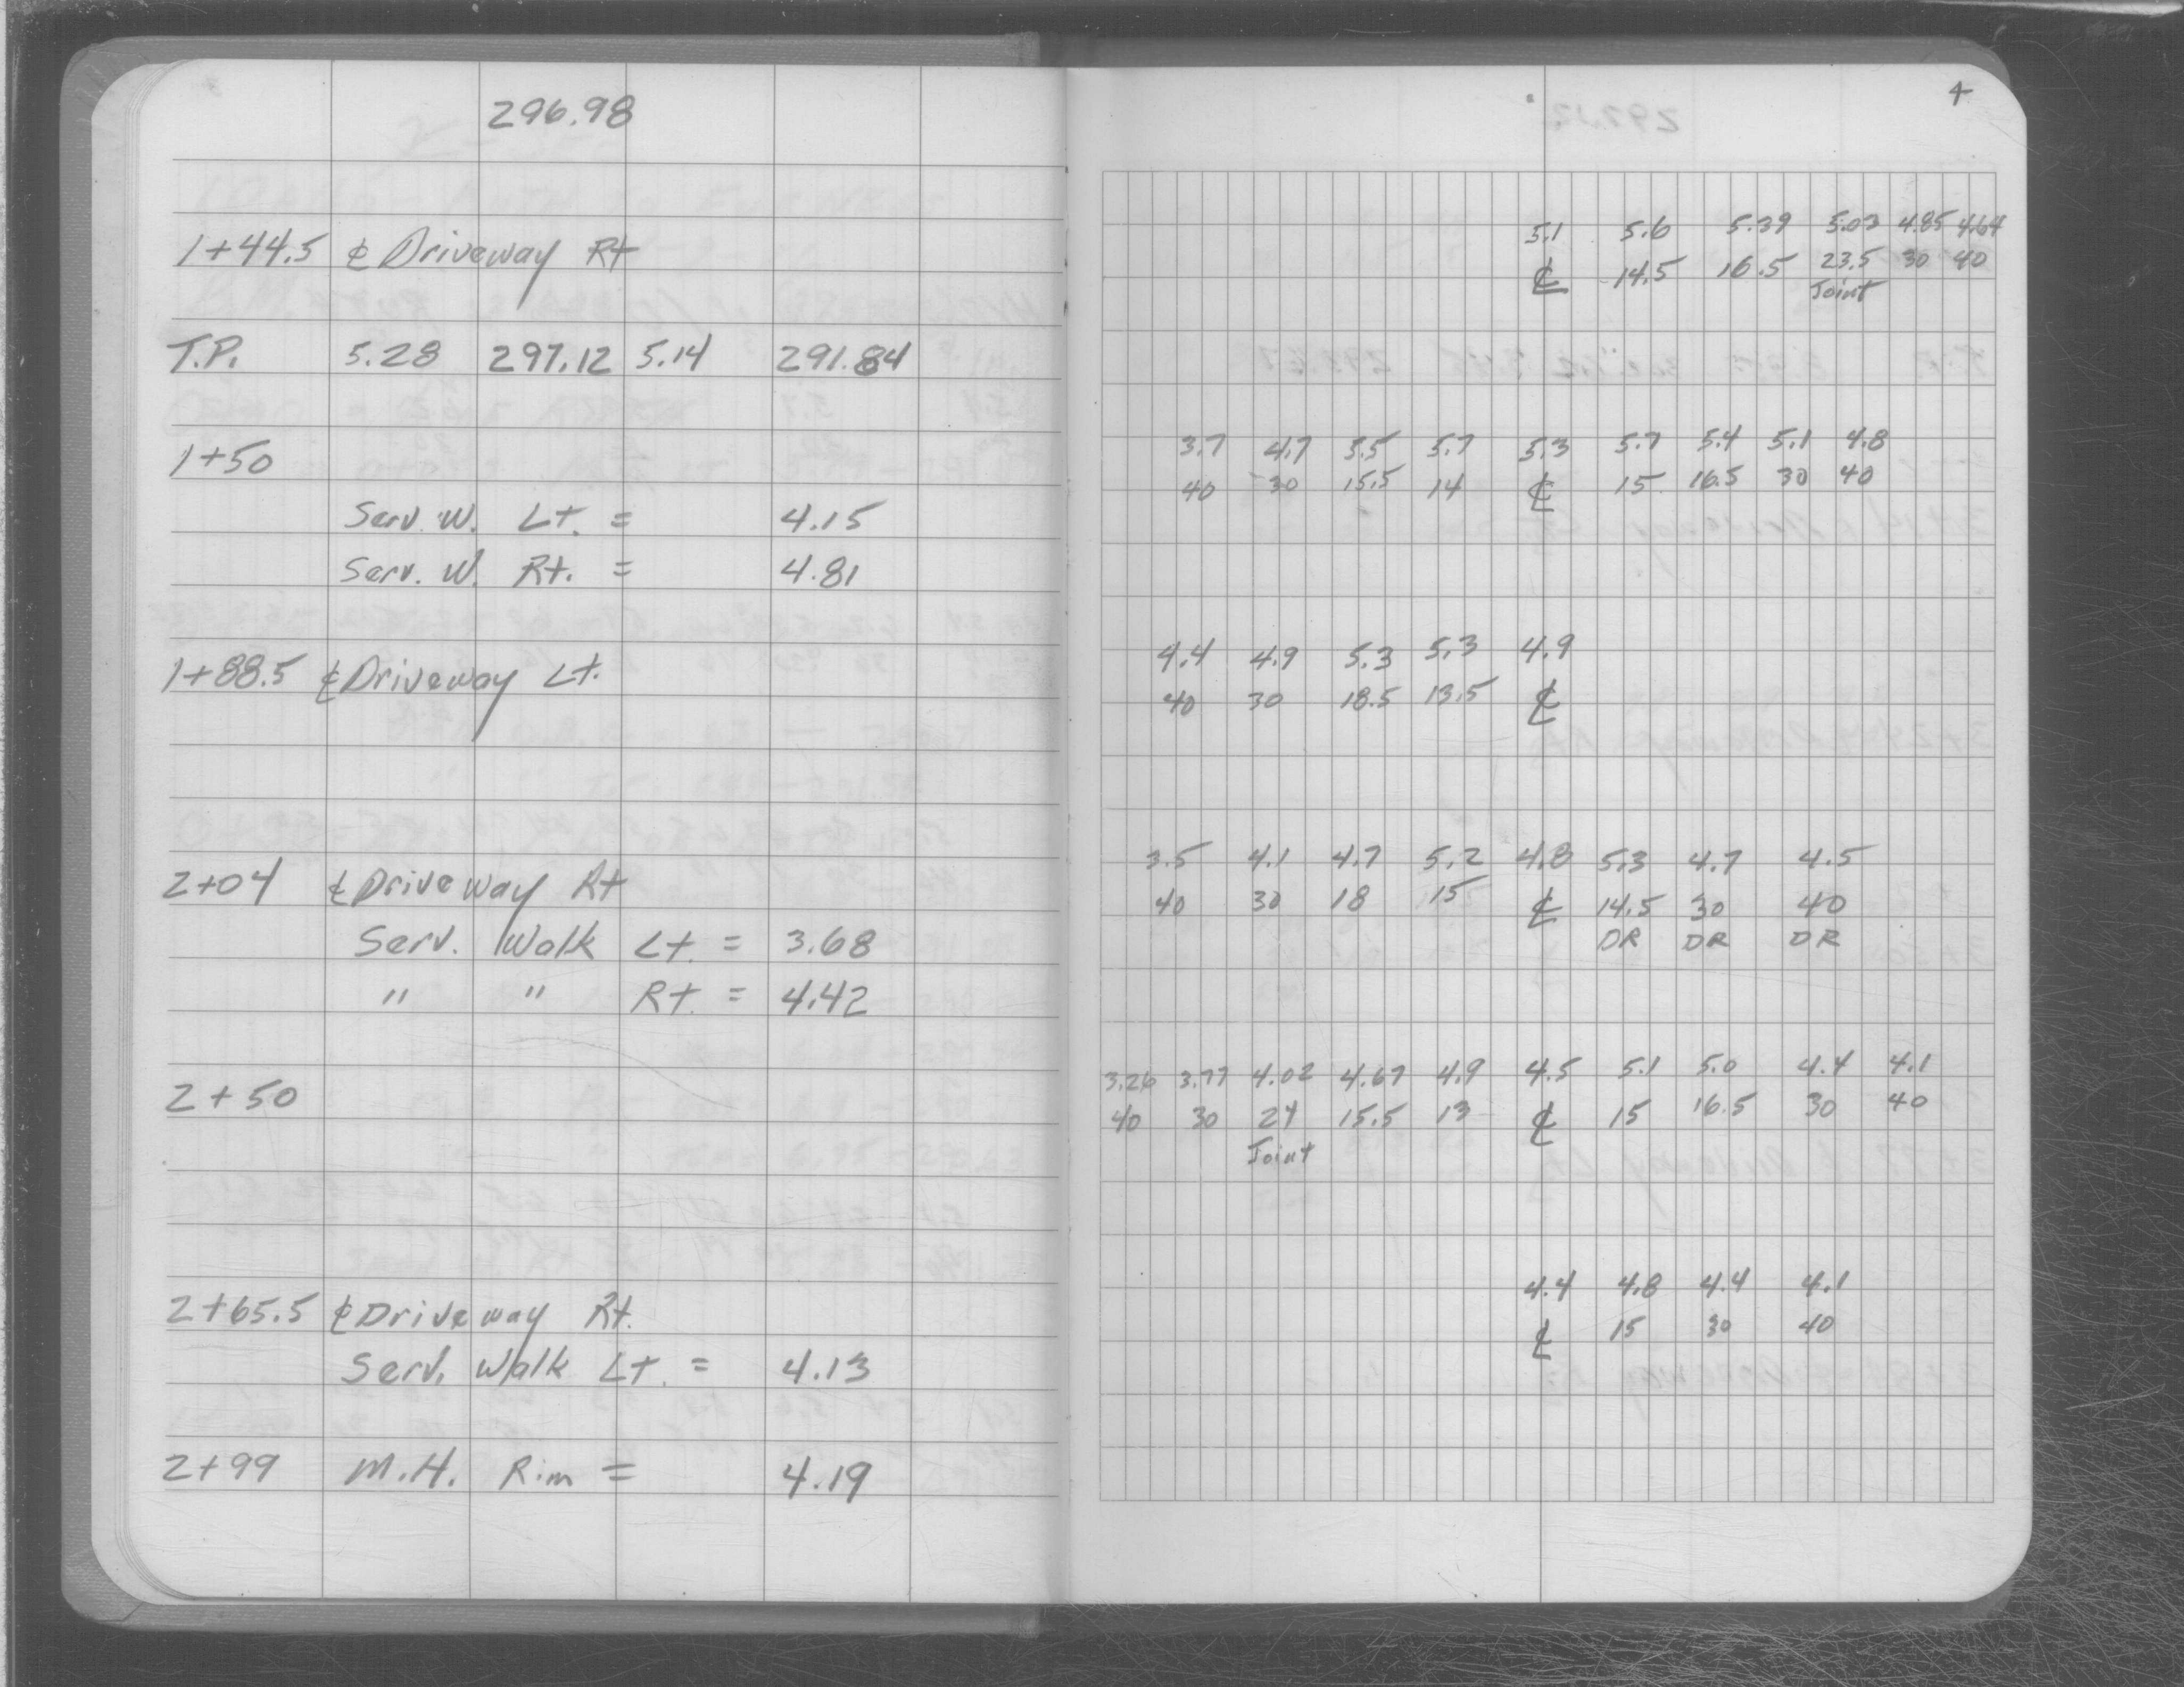 296.98
1+44.5 ℄ Driveway Rt
T.P. 5.28 297.12 5.14 291.84
1+50
Serv. W. Lt. = 4.15
Serv. W. Rt. = 4.81
1+88.5 ℄ Driveway Lt.
2+04 ℄ Driveway Rt
Serv. Walk Lt. = 3.68
" " Rt. = 4.42
2+50
2+65.5 ℄ Driveway Rt.
Serv. Walk Lt. = 4.13
2+99 M.H. Rim = 4.19
4
5.1 5.6 5.39 5.03 4.85 4.64
℄ 14.5 16.5 23.5 30 40
Joint
3.7 4.7 5.5 5.7 5.3 5.7 5.4 5.1 4.8
40 30 15.5 14 ℄ 15 16.5 30 40
4.4 4.9 5.3 5.3 4.9
40 30 18.5 13.5 ℄
3.5 4.1 4.7 5.2 4.8 5.3 4.7 4.5
40 30 18 15 ℄ 14.5 30 40
DR DR DR
3.26 3.77 4.02 4.67 4.9 4.5 5.1 5.0 4.4 4.1
40 30 24 15.5 13 ℄ 15 16.5 30 40
Joint
4.4 4.8 4.4 4.1
℄ 15 30 40